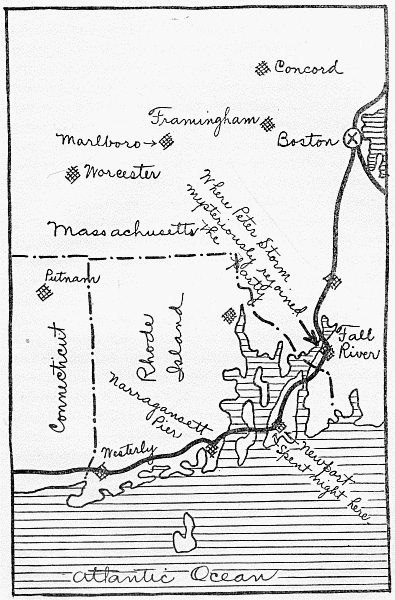 Concord
Framingham
Marlboro→
Boston
Worcester
Where Peter Storm
mysteriously rejoined
the
party
Massachusetts
Putnam
Rhode
Island
Connecticut
Fall
River
Narragansett
Pier
Westerly
Newport
Spent night here
Atlantic Ocean